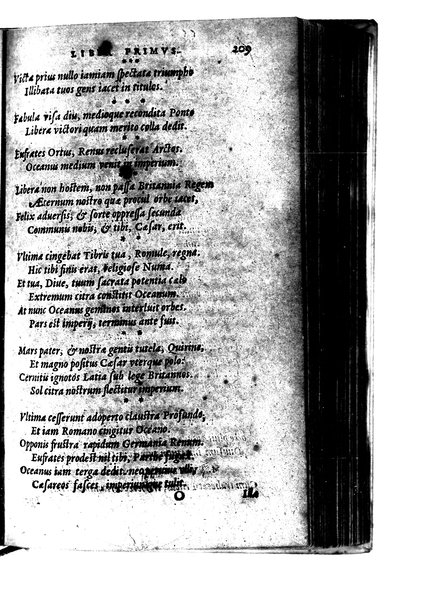 LIBER PRIMVS. 209
Victa prius nullo iamiam spectata triumpho
Illibata tuos gens iacet in titulos.
Fabula visa diu, medioque recondita Ponto
Libera victori quam merito colla dedit.
Eufrates Ortus, Renus recluserat Arctos,
Oceanus medium venit in imperium.
Libera non hostem, non passa Britannia Regem
Æternum nostro quæ procul orbe iacet,
Felix aduersis, & sorte oppressa secunda
Communis nobis, & tibi, Cæsar, erit.
Vltima cingebat Tibris tua, Romule, regna:
Hic tibi finis erat, religiose Numa.
Et tua, Diue, tuum sacrata potentia cælo
Extremum citra constitit Oceanum.
At nunc Oceanus geminos interluit orbes.
Pars est imperij, terminus ante fuit.
Mars pater, & nostræ gentis tutela, Quirine,
Et magno positus Cæsar vterque polo:
Cernitis ignotos Latia sub lege Britannos.
Sol citra nostrum flectitur imperium.
Vltima cesserunt adoperto claustra Profundo,
Et iam Romano cingitur Oceano.
Opponis frustra rapidum Germania Renum.
Eufrates prodest nil tibi, Parthe fugax.
Oceanus iam terga dedit,
Cæsareos fasces, imperiumque tulit.
O Illa